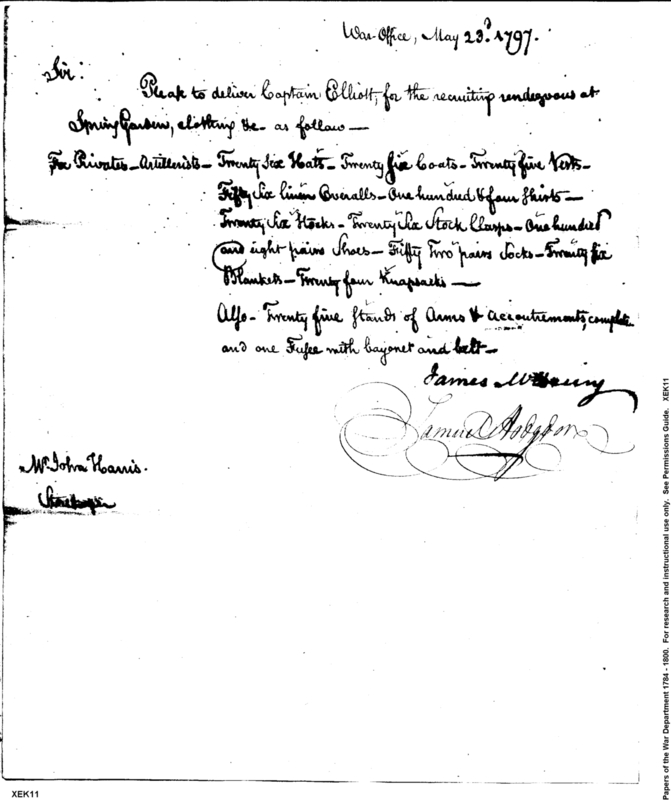 War-Office, May 23.d 1797.
Sir:
Please to deliver Captain Elliott, for the recruiting rendezvous at
Spring Garden, clothing &c as follow—
For Privates—Artillerists—Twenty Six Hats—Twenty five Coats—Twenty five Vests—
Fifty Six linen Overalls—One hundred & four Shirts—
Twenty Six Stocks—Twenty Six Stock Clasps—One hundred
and eight pairs Shoes—Fifty Two pairs Socks—Twenty Six
Blankets—Twenty four Knapsacks—
Also—Twenty five Stands of Arms & accoutrements, complete
and one Fusee with bayonet and belt—
James McHenry
Samuel Hodgdon
Mr. John Harris.
Storekeeper
XEK11
Papers of the War Department 1784 - 1800. For research and instructional use only. See Permissions Guide. XEK11